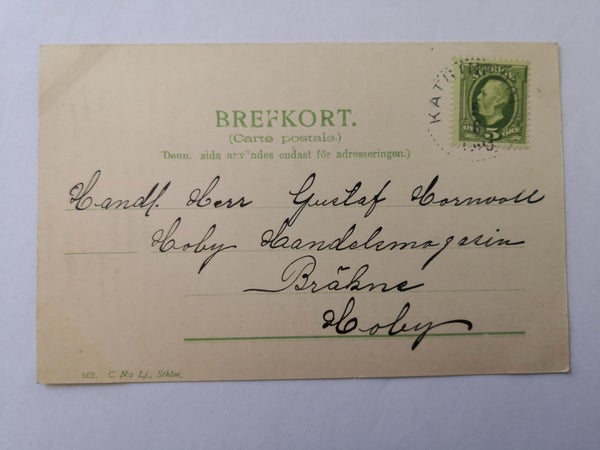 BREFKORT.
(Carte postale.)
Denn. sida användes endast för adresseringen.)
KATRIN
SVERIGE
5
ÖRE
Handl. Herr Gustaf Hornwall
Hoby Handelsmagasin
Bräkne
Hoby
162. C. N:s Lj., Sthlm.